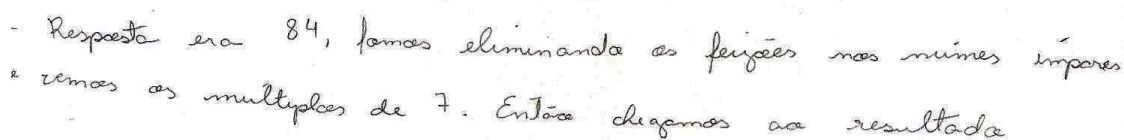 - Resposta era 84, fomos eliminando os feijões nos númes impares
e vemos os multiplos de 7. Então chegamos ao resultado